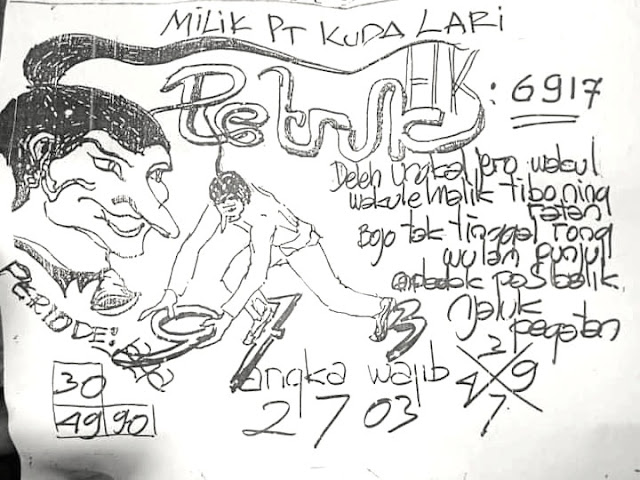 MILIK PT KUDA LARI
Petruk
HK: 6917
jero wakul
wakule malik tibo ning
ratan
Bojo tak tinggal rong
wulan punjul
pos balik
Njaluk
pegatan
PERIODE:
9 1 3
30
49 90
angka wajib
2 7 03
2
4 9
7